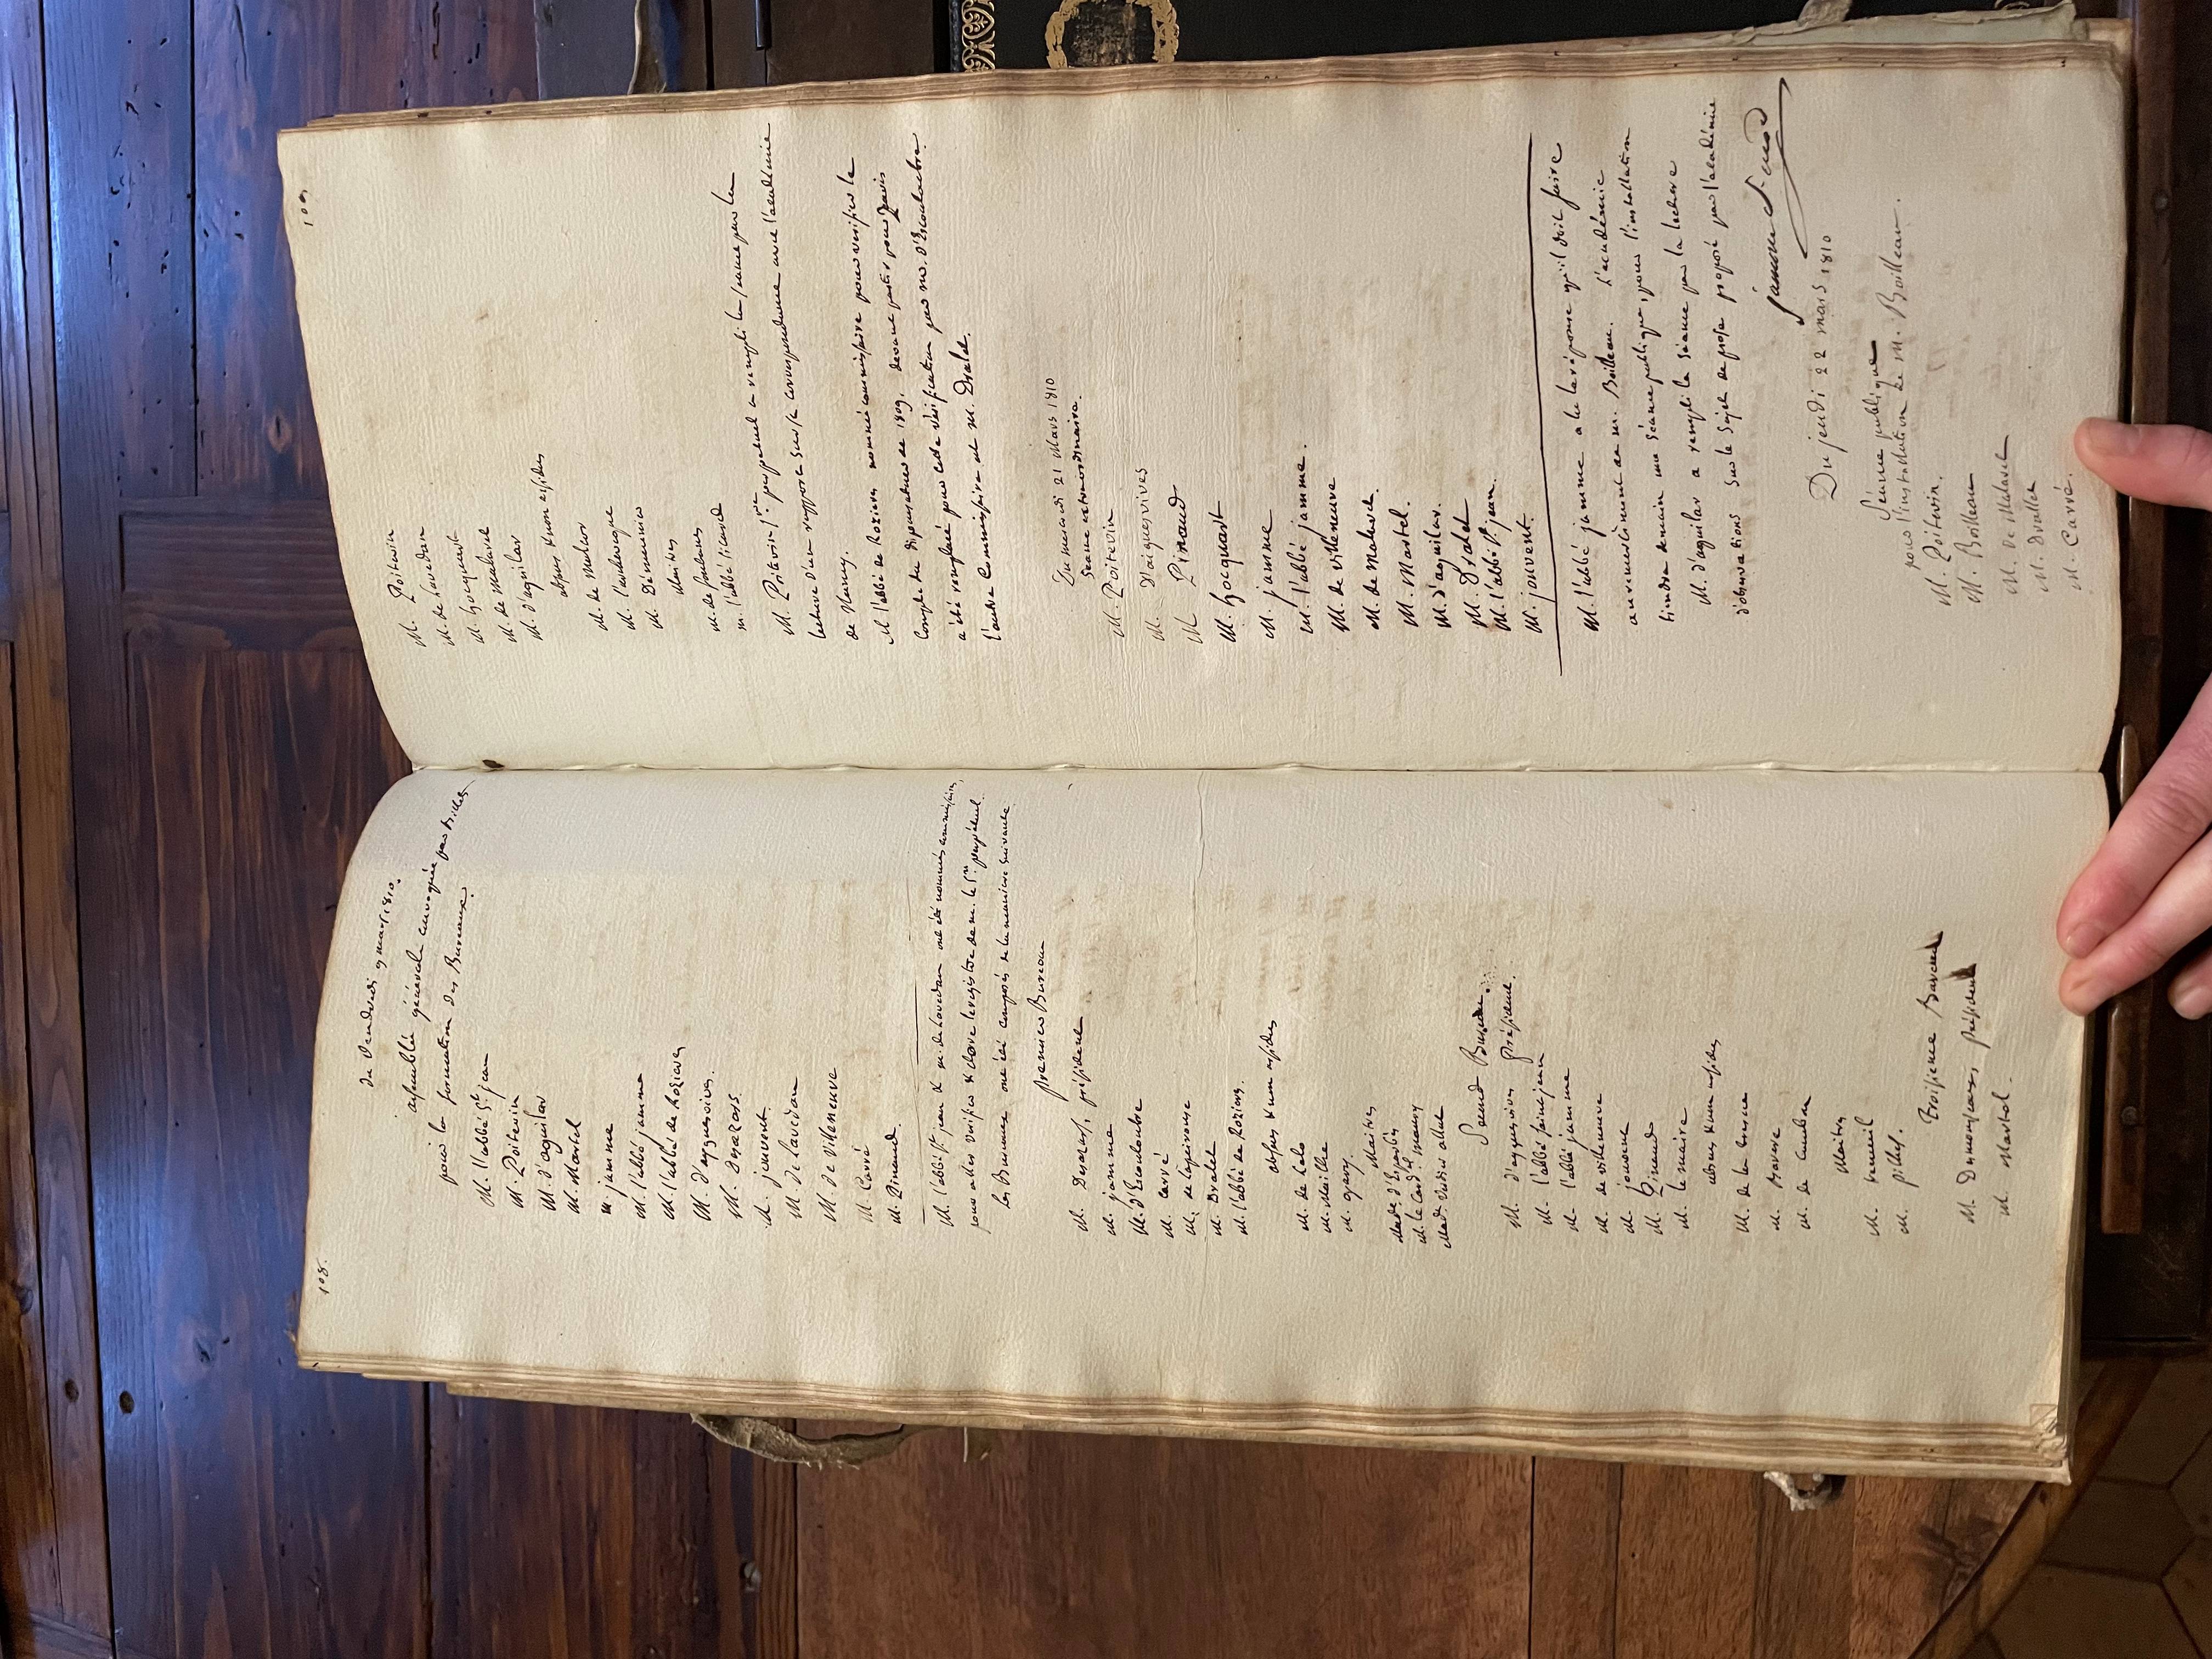 108.
du Vendredi 9 mars 1810.
assemblée générale convoquée par Billets
pour la formation des Bureaux.
M. l'abbé St. jean
M. Poitevin
M. d'aguilar
M. Martel
M. jamme
M. l'abbé jamme
M. l'abbé de Roziers
M. d'aiguesvives.
M. Desazars
M. jouvent.
M. De lavedan
M. de Villeneuve
M. Carré
M. Pinaud.
M. l'abbé St. jean & M. de lavedan ont été nommés commissaires,
pour aller vérifier & clore le registre de M. le Sre. perpétuel.
les Bureaux ont été composés de la manière suivante
premier Bureau
M. Desazars, président
M. jamme
M. d'Escouloubre
M. Carré
M. de lapeirouse
M. Dralet
M. l'abbé de Roziers.
absens & non assidus
M. de lalo
M. Mailhe
M. gary.
Maitres
M. le Card.al maury
Second Bureau.
M. d'aiguesvives président.
M. l'abbé saint jean
M. l'abbé jamme
M. de villeneuve
M. jouvent
M. Pinaud
M. le maire
absens & non assidus
M. Barere
M. de Cambon
Maitres
M. treneuil
M. pilhes.
Troisieme Bureau
président
M. Martel.
109
M. Poitevin
M. de lavedan
M. hocquart
M. de malaret
M. d'aguilar
absens & non assidus
M. de Mulhes
M. Désmurier
Maitres
M. de fontanes
M. l'abbé sicard
M. Poitevin Sre. perpétuel a rempli la séance par la
lecture d'un rapport sur sa correspondance avec l'académie
de Nancy.
M. l'abbé de Roziers nommé commissaire pour vérifier le
Compte du dispensateur de 1809. devant partir pour paris
a été remplacé pour cette vérification par M. d'Escouloubre.
l'autre Commissaire est M. Dralet.
Du mercredi 21 Mars 1810
Séance extraordinaire.
M. Poitevin
M. D'aiguesvives
M Pinaud
M. hocquart
M. jamme
M. l'abbé jamme.
M. de villeneuve
M. de Malaret.
M. Martel.
M. d'aguilar.
M. Dralet
M. l'abbé St. jean.
M. jouvent.
M. l'abbé jamme a lu la réponse qu'il doit faire
au remerciment de M. Boilleau. L'académie
tiendra demain une séance publique, pour l'installation
M. d'aguilar a rempli la séance par la lecture
d'observations sur le Sujet de prose proposé par l'académie
jamme
Du jeudi 22 mars 1810
Séance publique
pour l'installation de M. Boilleau.
M. Poitevin.
M. Boilleau
M. De Malaret
M. Dralet
M. Carré.